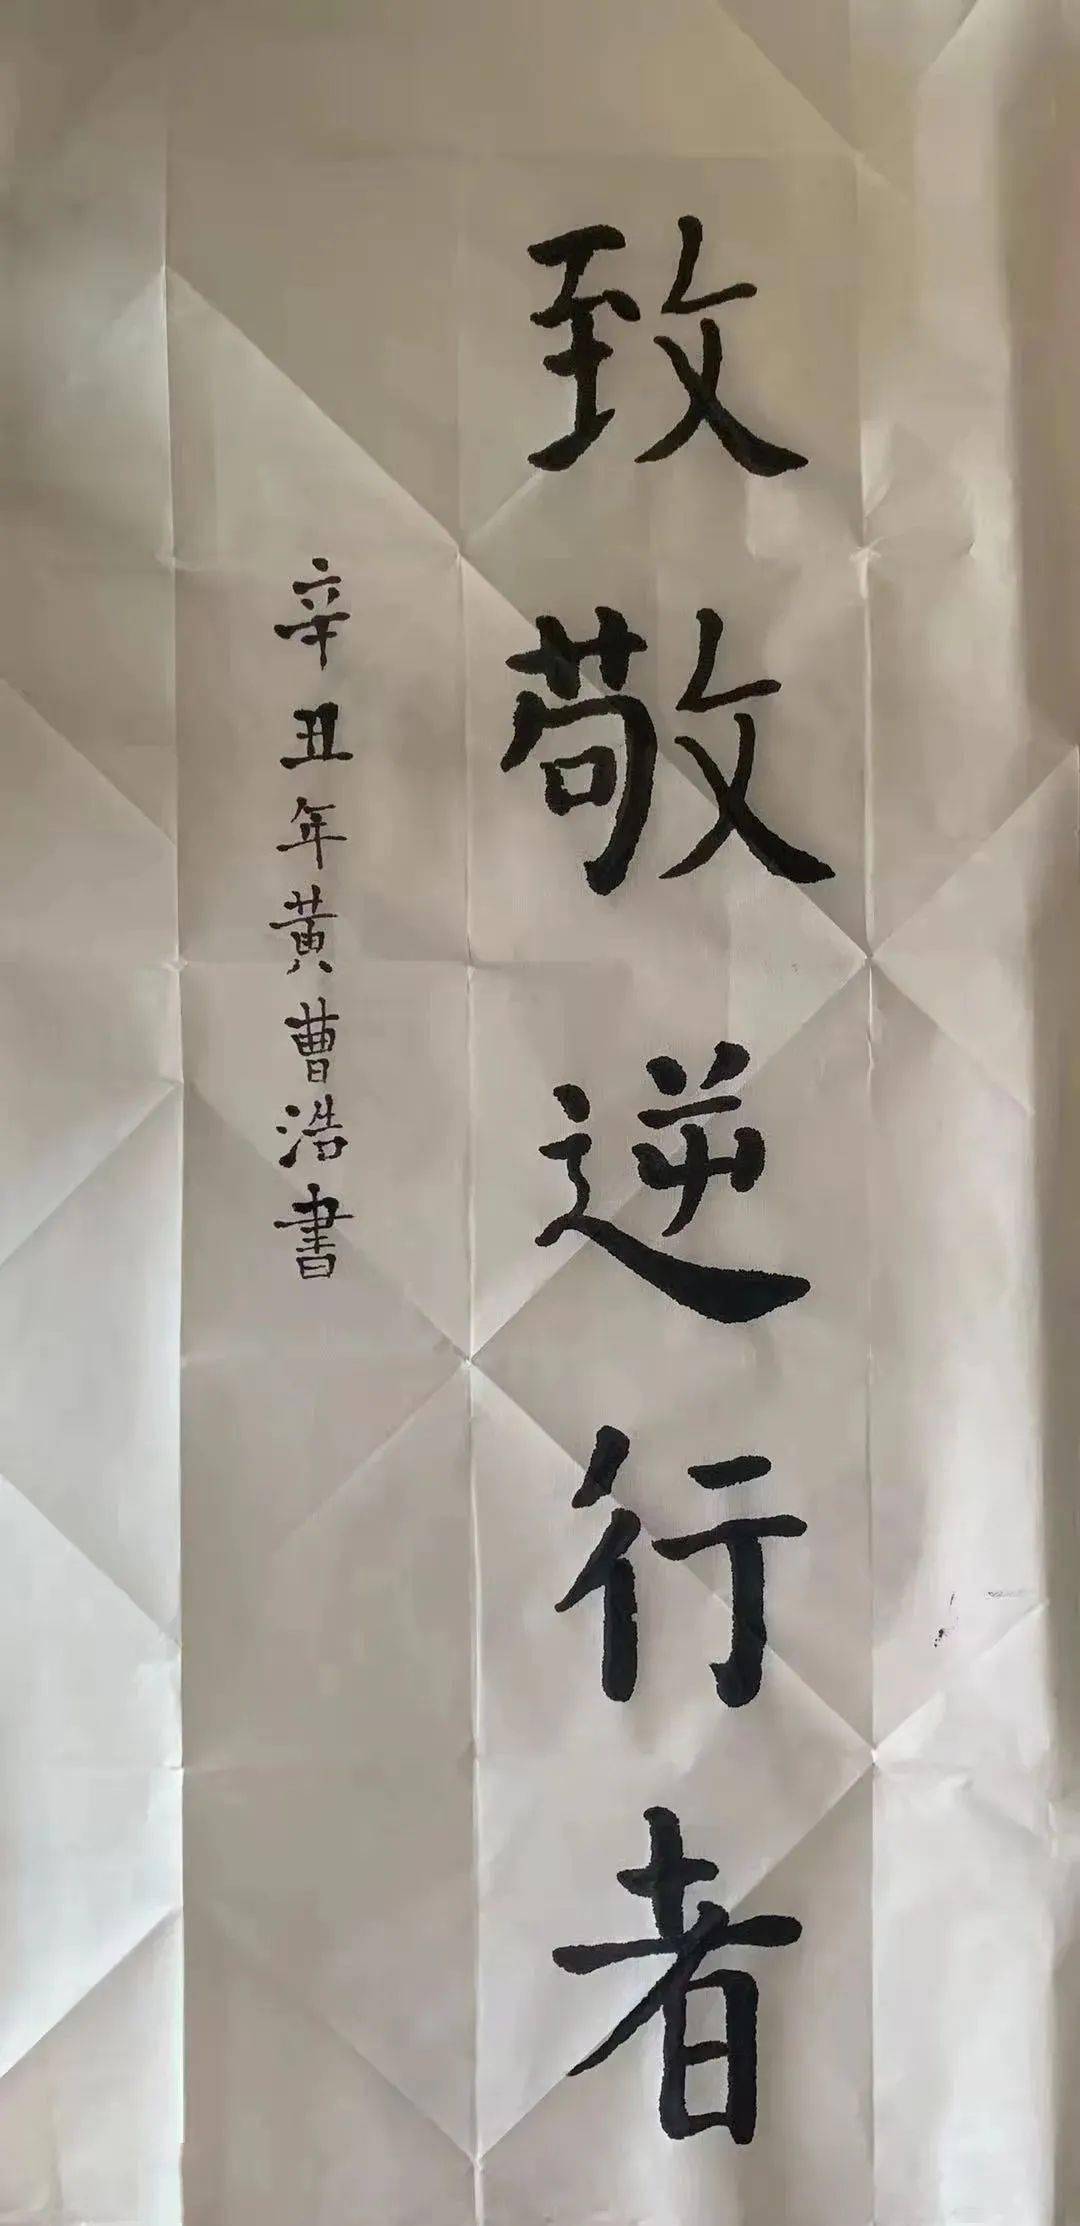 致敬逆行者
辛丑年黄曹浩書